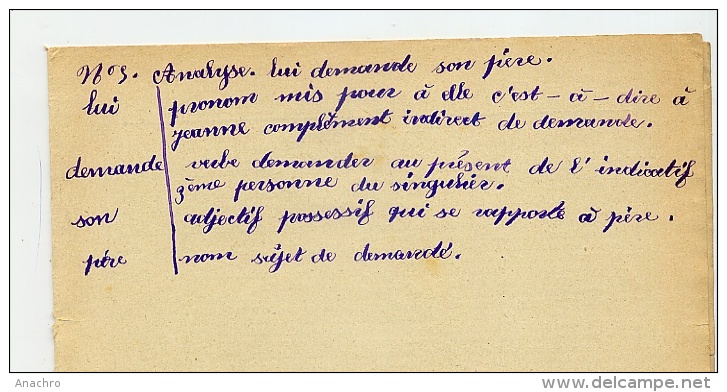 N° 3. Analyse. lui demande son père.
lui pronom mis pour à elle c'est-à-dire à
jeanne complément indirect de demande.
demande verbe demander au présent de l'indicatif
3ème personne du singulier.
son adjectif possessif qui se rapporte à père.
père nom sujet de demande.
Anachro
delcampe.net